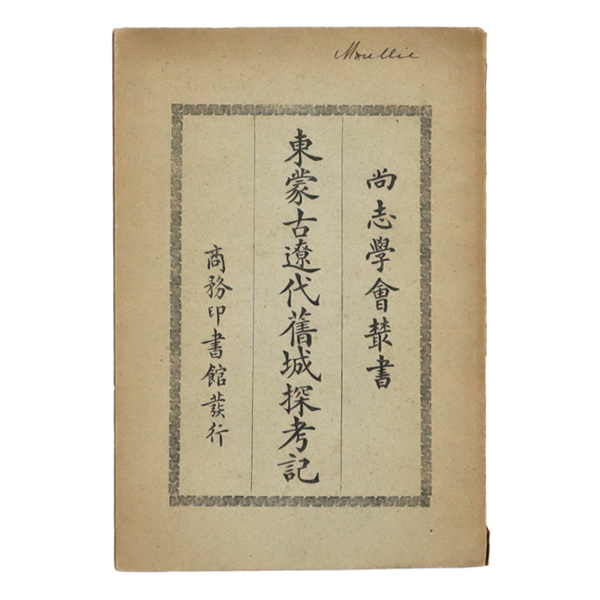 Mullie
尚志學會叢書
東蒙古遼代舊城探考記
商務印書館發行